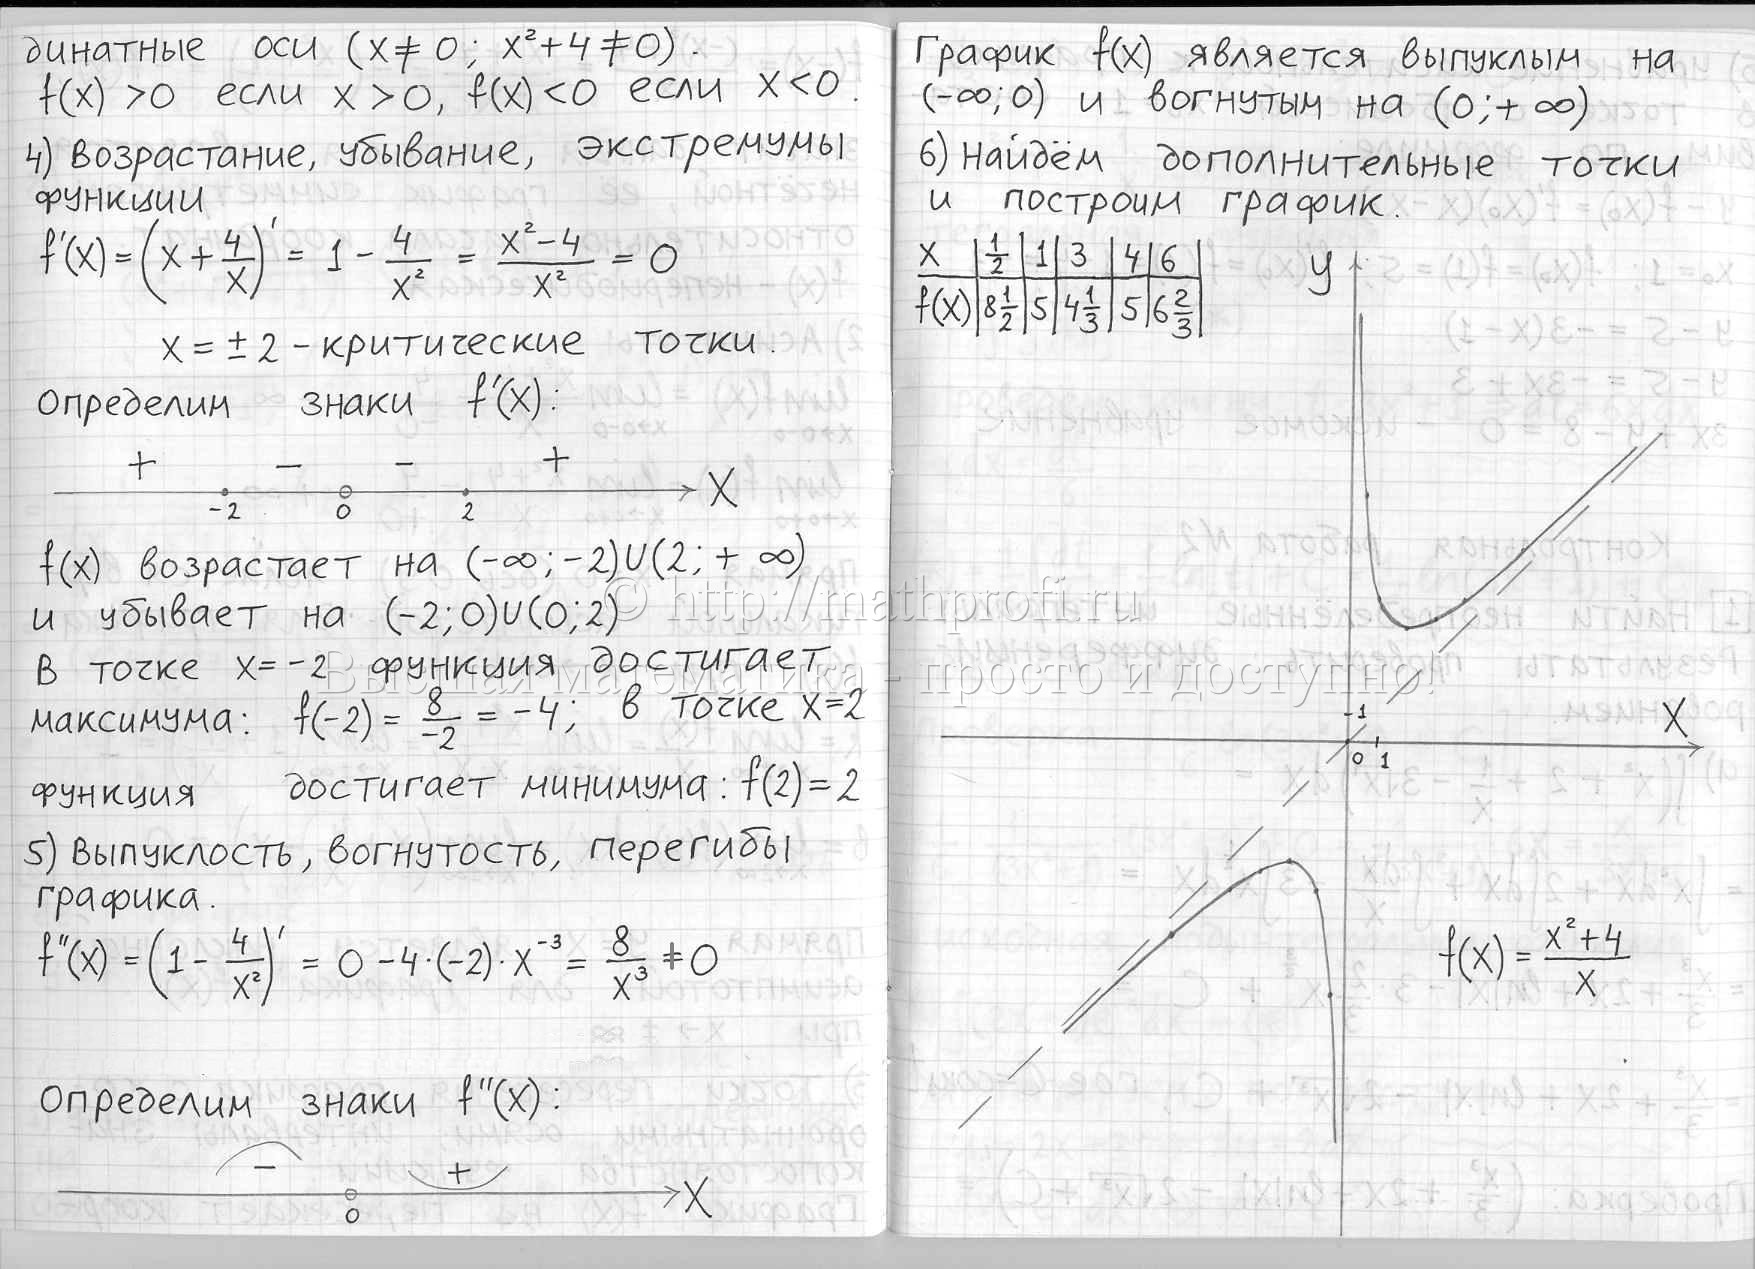 динатные оси (x≠0; x²+4≠0).
f(x)>0 если x>0, f(x)<0 если x<0.
4) Возрастание, убывание, экстремумы
функции
f'(x) = (x + 4/x)' = 1 - 4/x² = (x²-4)/x² = 0
x = ±2 - критические точки.
Определим знаки f'(x):
+ - - +
-2 0 2 X
f(x) возрастает на (-∞;-2)U(2;+∞)
и убывает на (-2;0)U(0;2)
В точке x=-2 функция достигает
максимума: f(-2) = 8/-2 = -4; в точке x=2
функция достигает минимума: f(2)=2
5) Выпуклость, вогнутость, перегибы
графика.
f''(x) = (1 - 4/x²)' = 0 - 4·(-2)·x⁻³ = 8/x³ ≠ 0
Определим знаки f''(x):
- +
0 X
График f(x) является выпуклым на
(-∞;0) и вогнутым на (0;+∞)
6) Найдём дополнительные точки
и построим график.
x | 1/2 | 1 | 3 | 4 | 6
f(x) | 8 1/2 | 5 | 4 1/3 | 5 | 6 2/3
y
1
X
0 1
f(x) = (x²+4)/x
© http://mathprofi.ru
Высшая математика - просто и доступно!